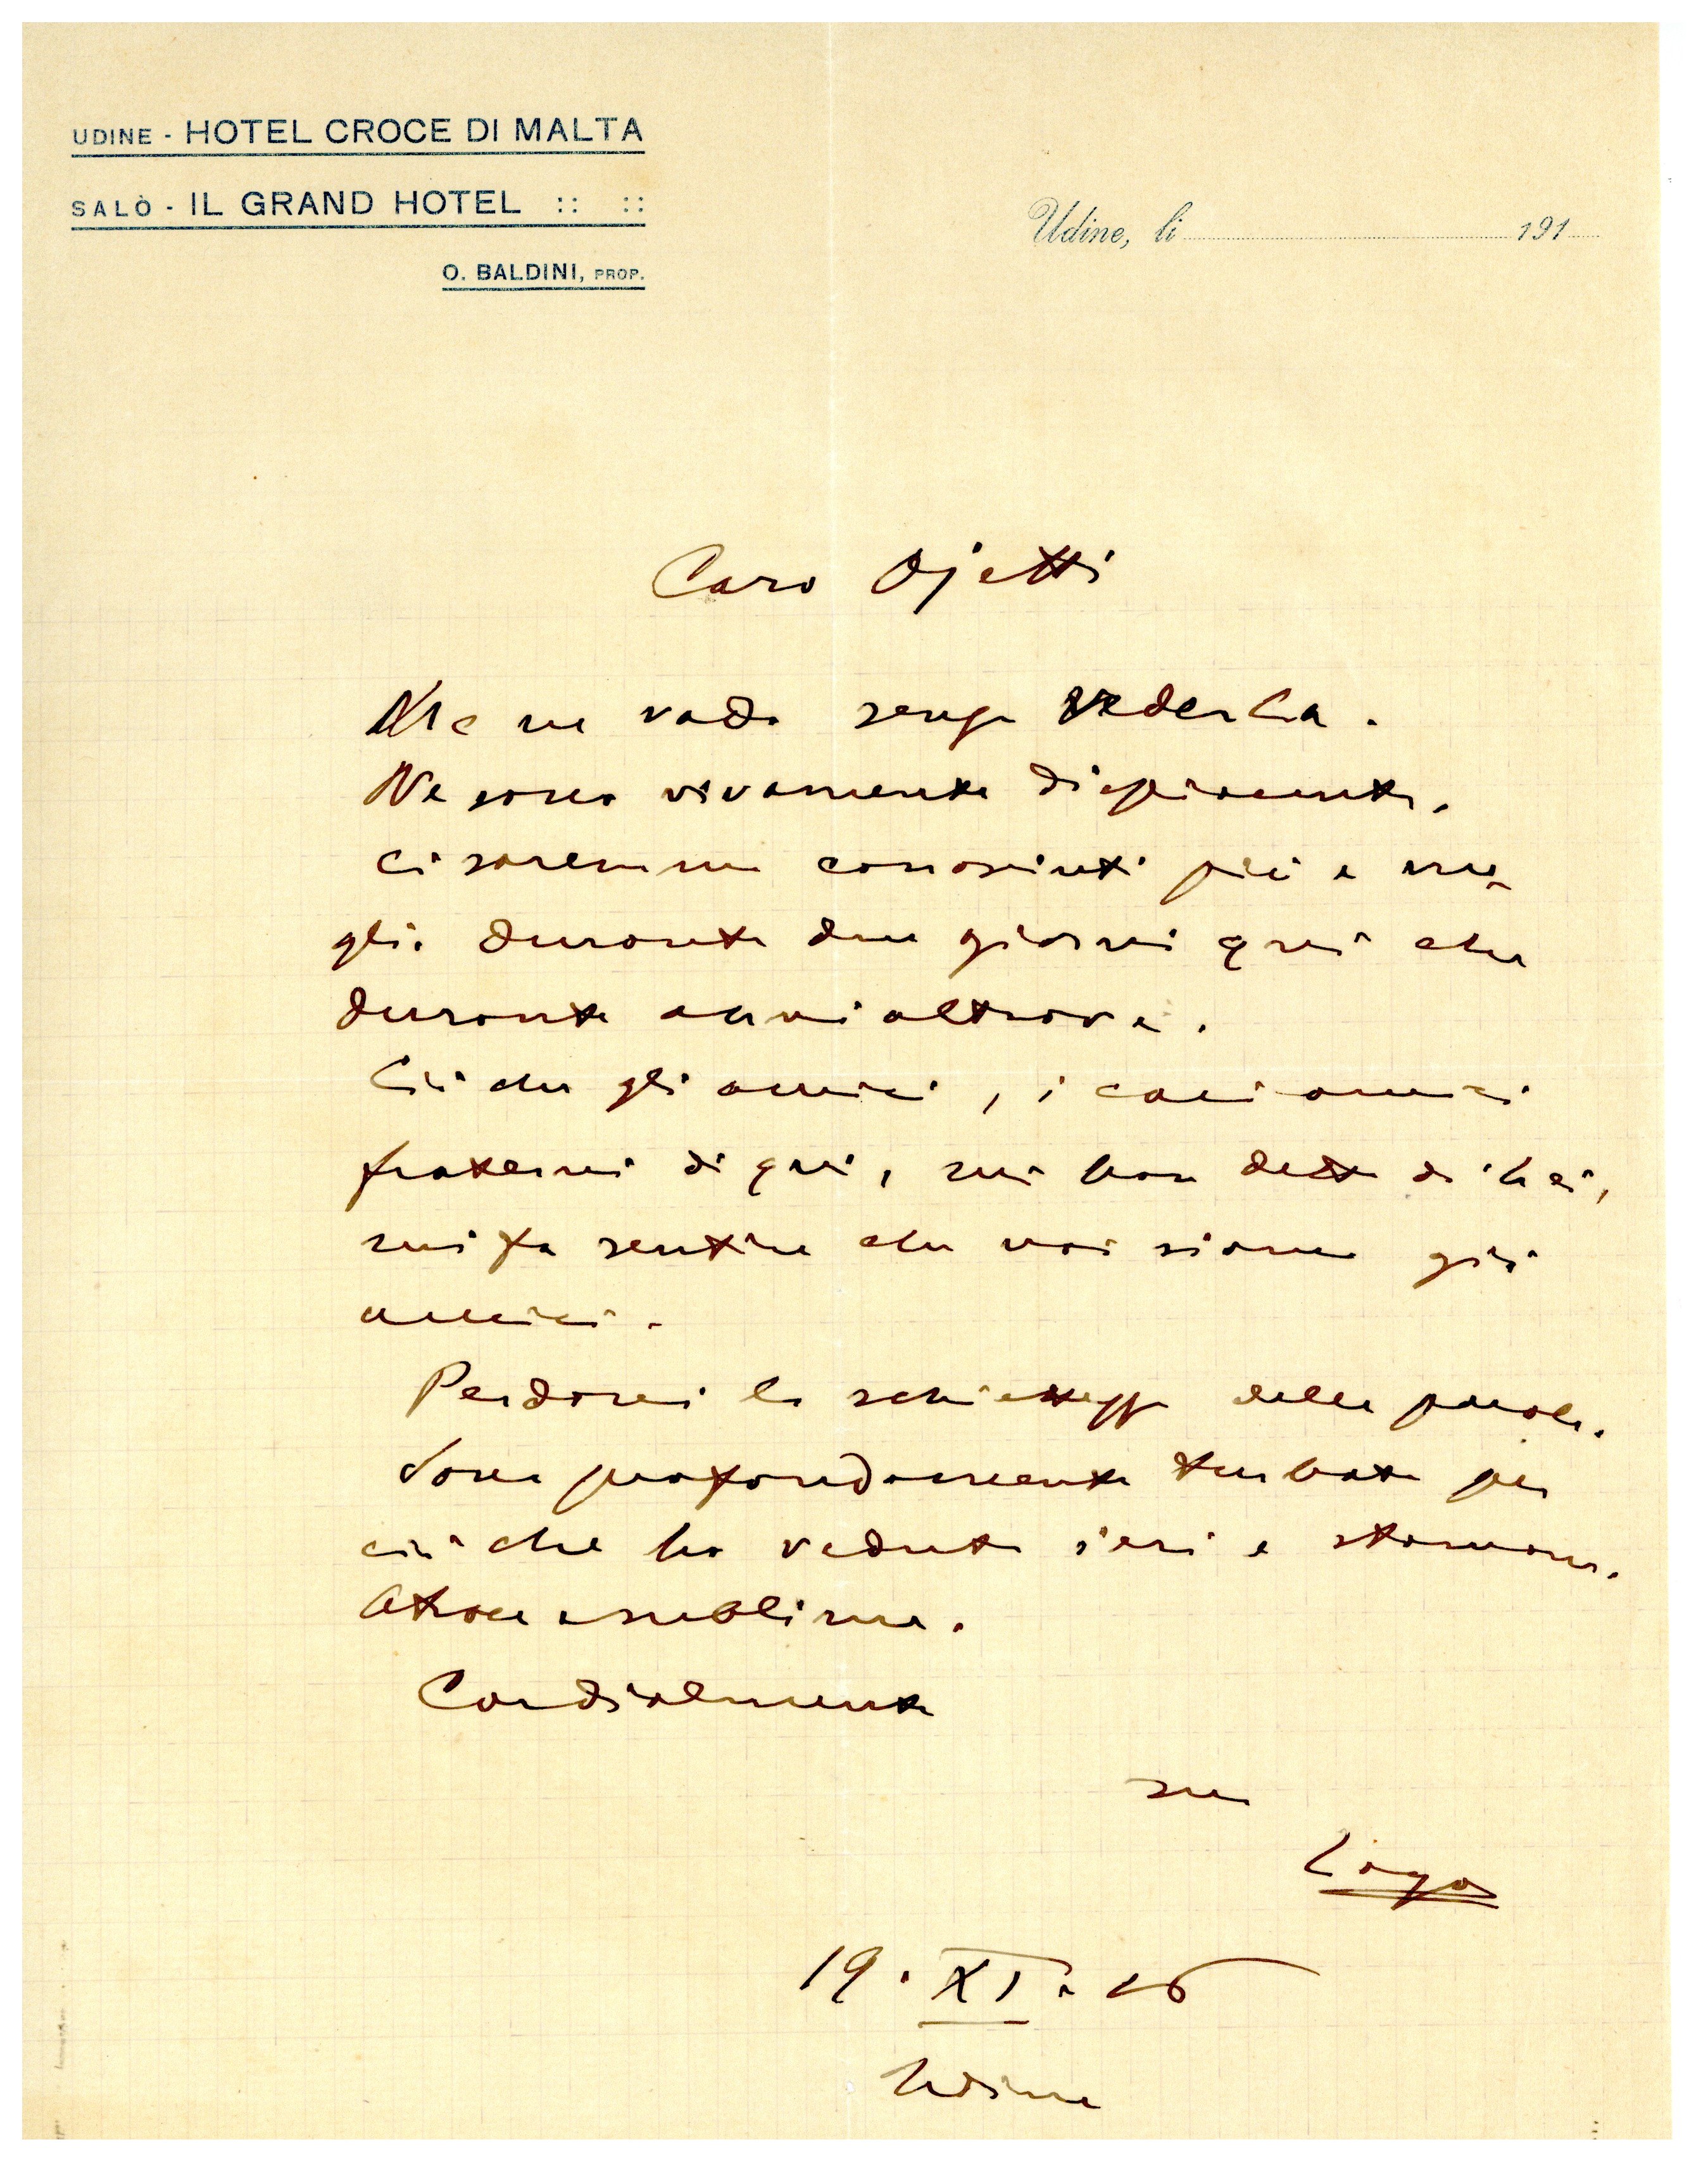 UDINE - HOTEL CROCE DI MALTA
SALÒ - IL GRAND HOTEL :: ::
O. BALDINI, PROP.
Udine, li 191
Caro Ojetti
Me ne vado senza vederLa.
Ne sono vivamente dispiacente.
Ci saremmo conosciuti più e me-
glio durante due giorni qui che
durante anni altrove.
Ciò che gli amici, i cari amici
fraterni di qui, mi han detto di Lei,
mi fa sentire che noi siamo già
amici.
Perdoni la schiettezza della parola.
Sono profondamente turbato per
ciò che ho veduto ieri e stamane.
Atroce e sublime.
Cordialmente
suo
19.XI.16
Udine